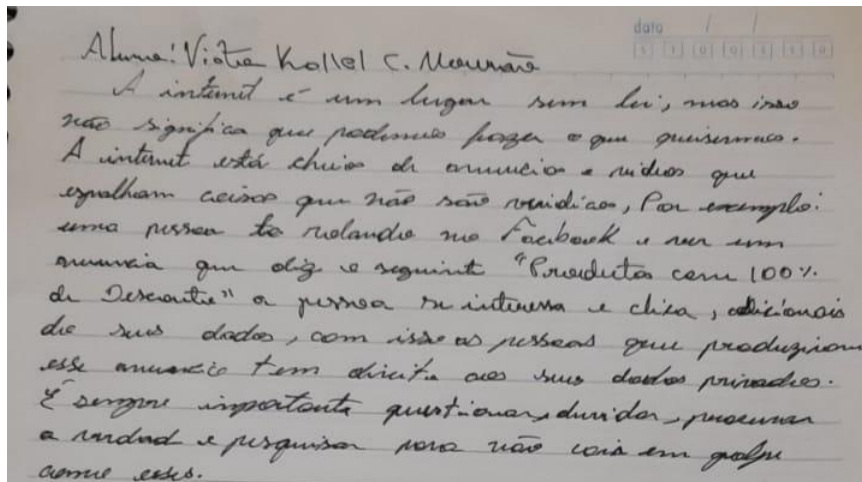 data / /
Aluna: Kallel C. Mourão
A internet é um lugar sem lei, mas isso
não significa que podemos fazer o que quisermos.
A internet está cheia de anuncios e videos que
espalham coisas que não são veridicas, Por exemplo:
uma pessoa ta rolando no Facebook e ver um
anuncio que diz o seguinte "Produtos com 100%
de Desconto" a pessoa se interessa e clica,
de seus dados, com isso as pessoas que produziram
esse anuncio tem direito aos seus dados privados.
É sempre importante questionar, duvidar, procurar
a verdad e pesquisar para não cair em golpe
como esses.